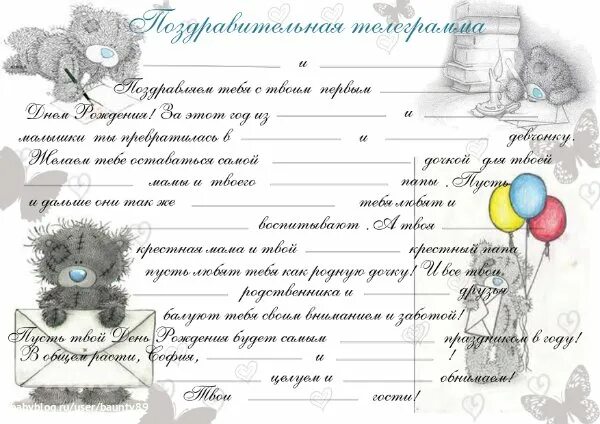 Поздравительная телеграмма
____________ и ____________
Поздравляем тебя с твоим первым ____________
Днем Рождения! За этот год из ____________ и ____________
малышки ты превратилась в ____________ и ____________ девчонку.
Желаем тебе оставаться самой ____________ дочкой для твоей
____________ мамы и твоего ____________ папы . Пусть
и дальше они так же ____________ тебя любят и
____________ воспитывают . А твоя ____________
крестная мама и твой ____________ крестный папа
пусть любят тебя как родную дочку! И все твои
____________ родственника и ____________ друзья
балуют тебя своим вниманием и заботой!
Пусть твой День Рождения будет самым ____________ праздником в году!
В общем расти, София, ____________ и ____________ !
____________ целуем и ____________ обнимаем!
Твои ____________ гости!
babyblog.ru/user/baunty89